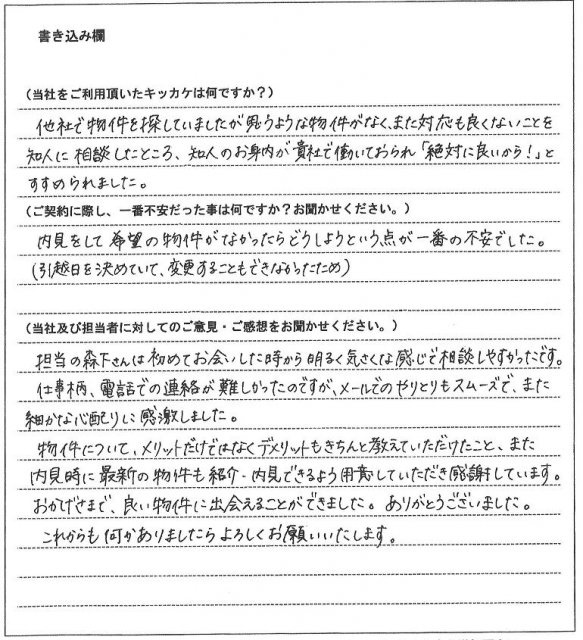 書き込み欄
（当社をご利用頂いたキッカケは何ですか？）
他社で物件を探していましたが思うような物件がなく、また対応も良くないことを
知人に相談したところ、知人のお身内が貴社で働いておられ「絶対に良いから！」と
すすめられました。
（ご契約に際し、一番不安だった事は何ですか？お聞かせください。）
内見をして希望の物件がなかったらどうしようという点が一番の不安でした。
（引越日を決めていて、変更することもできなかったため）
（当社及び担当者に対してのご意見・ご感想をお聞かせください。）
担当の森下さんは初めてお会いした時から明るく気さくな感じで相談しやすかったです。
仕事柄、電話での連絡が難しかったのですが、メールでのやりとりもスムーズで、また
細かな心配りに感激しました。
物件について、メリットだけではなくデメリットもきちんと教えていただけたこと、また
内見時に最新の物件も紹介・内見できるよう用意していただき感謝しています。
おかげさまで、良い物件に出会えることができました。ありがとうございました。
これからも何かありましたらよろしくお願いいたします。